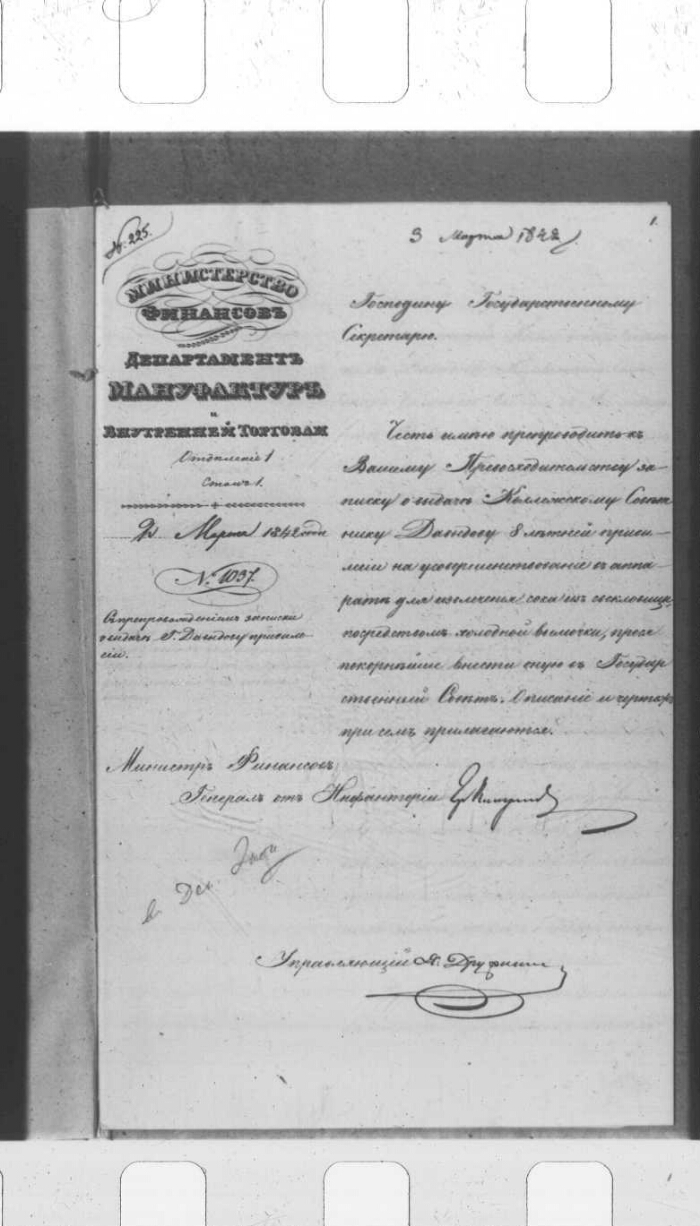 № 225.
3 Марта 1842
1.
МИНИСТЕРСТВО
ФИНАНСОВЪ
ДЕПАРТАМЕНТЪ
МАНУФАКТУРЪ
и
ВНУТРЕННЕЙ ТОРГОВЛИ
Отдѣленіе 1
Столъ 1.
Марта 1842 года
№ 1037.
Съ препровожденіемъ записки
о выдачѣ Г. Давыдову привиле-
гіи.
Господину Государственному
Секретарю.
Честь имѣю препроводить къ
Вашему Превосходительству за-
писку о выдачѣ Коллежскому Совѣт-
нику Давыдову 8 лѣтней приви-
легіи на усовершенствованіе въ аппа-
ратѣ для извлеченія сока изъ свекловицы
посредствомъ холодной вымочки, прося
покорнѣйше внести оную въ Государ
ственный Совѣтъ. Описаніе и чертежъ
при семъ прилагаются.
Министръ Финансовъ,
Генералъ отъ Инфантеріи Гр. Канкринъ
в Деп.
Управляющій Я. Дружининъ